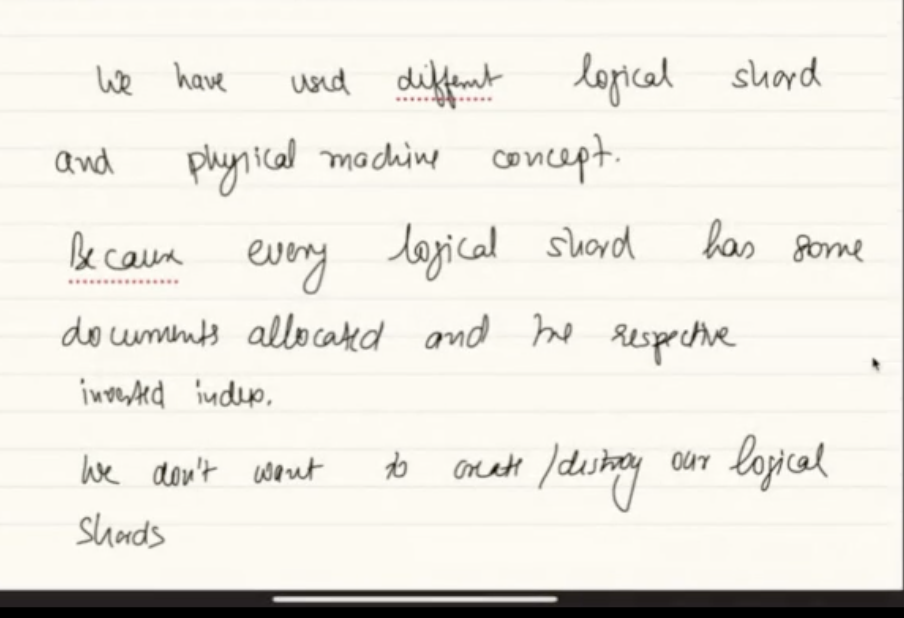 We have used different logical shard
and physical machine concept.
Because every logical shard has some
documents allocated and the respective
inverted index.
We don't want to create/destroy our logical
Shards